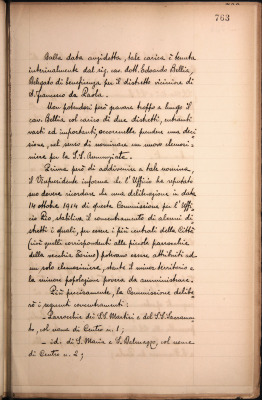 763
Dalla data anzidetta, tale carica è tenuta
interinalmente dal sig. cav. dott. Edoardo Bellia,
Delegato di beneficenza per il distretto viciniore di
S. Francesco da Paola.
Non potendosi però gravare troppo a lungo il
cav. Bellia col carico di due distretti, entrambi
vasti ed importanti, occorrerebbe prendere una deci
sione, nel senso di nominare un nuovo elemosi-
niere per la SS. Annunziata.
Prima però di addivenire a tale nomina,
il Vicepresidente informa che l'Ufficio ha
dovere ricordare che una deliberazione in data
14 ottobre 1914 di questa Commissione per l'Uffi
cio Pio, stabiliva il concentramento di alcuni di-
stretti i quali, pur essere i più centrali della Città
(cioè quelli corrispondenti alle piccole parrocchie
della vecchia Torino) potevano essere attribuiti ad
un solo elemosiniere, stante il minor territorio e
la minore popolazione povera da amministrare.
Più precisamente, la Commissione delibe
rò i seguenti concentramenti:
- Parrocchie dei SS. Martiri e del SS. Sacramen
to, col nome di Centro n. 1;
- id: di S. Maria e S. Dalmazzo, col nome
di Centro n. 2;